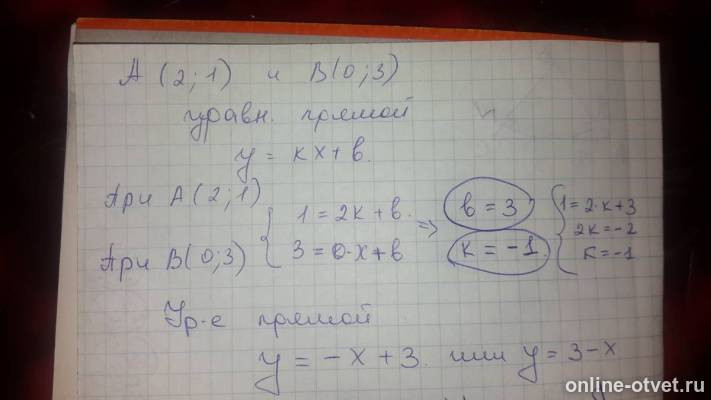 A (2; 1) и B(0; 3)
уравн. прямой
y = kx + b.
При A(2; 1)
1 = 2k + b.
При B(0; 3)
3 = 0·x + b
=> b = 3
k = -1.
1 = 2·k + 3
2k = -2
k = -1
Ур-е прямой
y = -x + 3. или y = 3 - x
online-otvet.ru